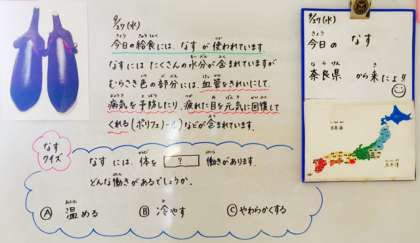 9/27(水)
今日の給食には、なすが使われています
なすにはたくさんの水分が含まれていますが
むらさき色の部分には、血管をきれいにして
病気を予防したり、疲れた目を元気に回復して
くれる(ポリフェノール)などが含まれています。
なす
クイズ
なすには、体を ? 働きがあります。
どんな働きがあるでしょうか。
Ⓐ 温める Ⓑ 冷やす Ⓒ やわらかくする
9/27(水)
今日の なす
奈良県 から来たよ!!